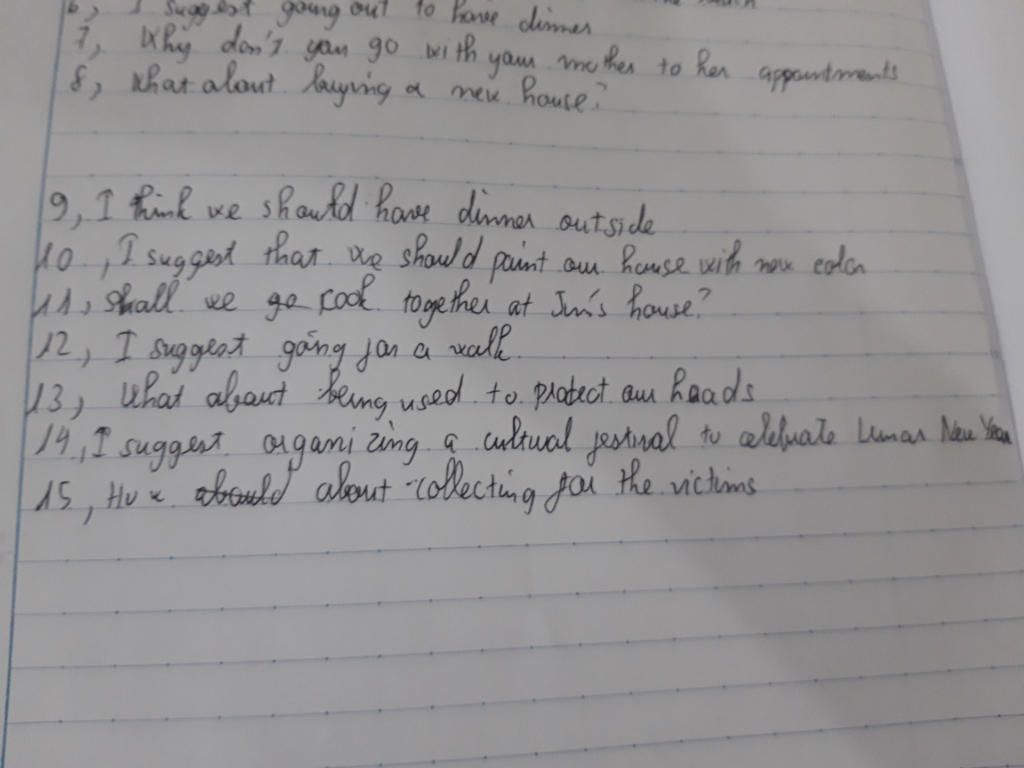 6, I suggest going out to have dinner
7, Why don't you go with your mother to her appointments
8, What about buying a new house?
9, I think we should have dinner outside
10, I suggest that we should paint our house with new color
11, Shall we go cook together at Jun's house?
12, I suggest going for a walk
13, What about being used to protect our heads
14, I suggest organizing a cultural festival to celebrate Lunar New Year
15, How about collecting for the victims